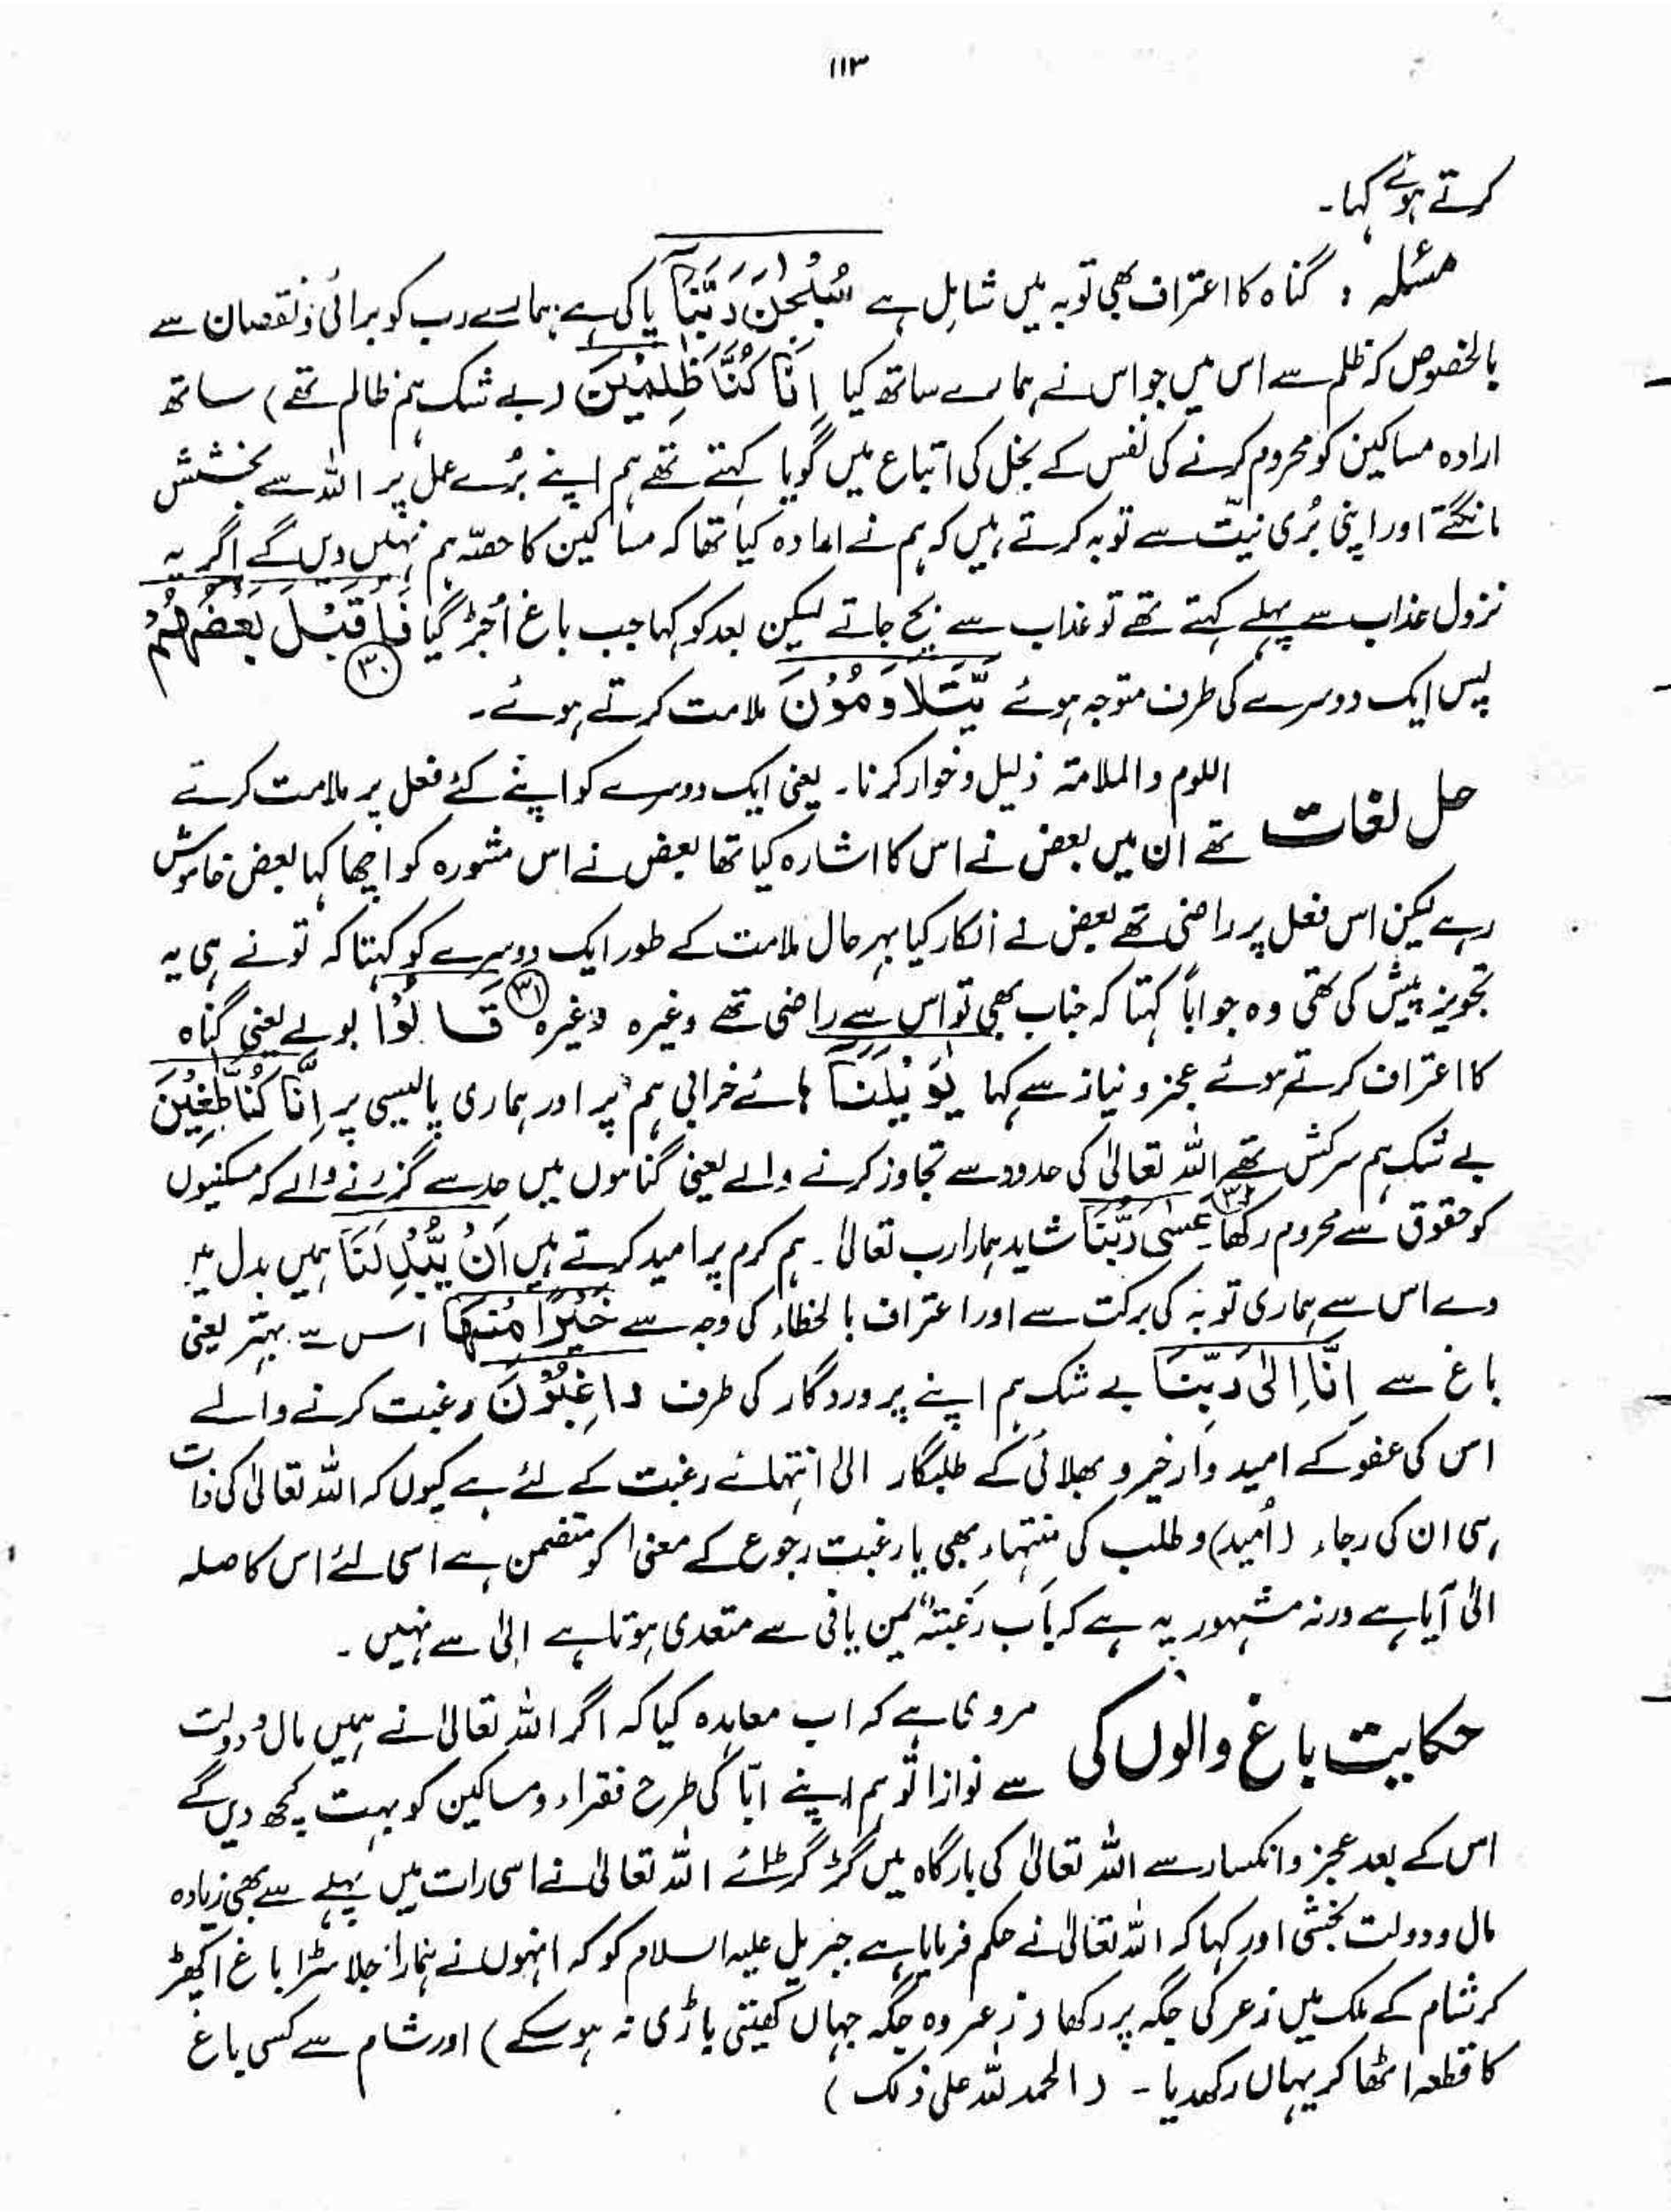 ۱۱۳
کرتے ہوئے کہا۔
مسئلہ : گناہ کا اعتراف بھی توبہ میں شامل ہے سُبْحٰنَ رَبِّنَآ پاکی ہے ہمارے رب کو برائی و نقصان سے
بالخصوص کہ ظلم سے اس میں جو اس نے ہمارے ساتھ کیا اِنَّا کُنَّا ظٰلِمِیْنَ (بے شک ہم ظالم تھے) ساتھ
ارادہ مساکین کو محروم کرنے کی نفس کے بخل کی اتباع میں گویا کہتے تھے ہم اپنے بُرے عمل پر اللہ سے بخشش
مانگتے اور اپنی بُری نیّت سے توبہ کرتے ہیں کہ ہم نے ارادہ کیا تھا کہ مساکین کا حصّہ ہم نہیں دیں گے اگر یہ
نزول عذاب سے پہلے کہتے تھے تو عذاب سے بچ جاتے لیکن بعد کو کہا جب باغ اُجڑ گیا فَاَقْبَلَ بَعْضُهُمْ
۳۰
پس ایک دوسرے کی طرف متوجہ ہوئے یَّتَلَاوَمُوْنَ ملامت کرتے ہوئے۔
حل لغات
اللوم والملامتہ ذلیل و خوار کرنا۔ یعنی ایک دوسرے کو اپنے کئے فعل پر ملامت کرتے
تھے ان میں بعض نے اس کا اشارہ کیا تھا بعض نے اس مشورہ کو اچھا کہا بعض خاموش
رہے لیکن اس فعل پر راضی تھے بعض نے انکار کیا بہرحال ملامت کے طور ایک دوسرے کو کہتا کہ تو نے ہی یہ
تجویز پیش کی تھی وہ جواباً کہتا کہ جناب بھی تو اس سے راضی تھے وغیرہ وغیرہ ۳۱ قَالُوْا بولے یعنی گناہ
کا اعتراف کرتے ہوئے عجز و نیاز سے کہا یٰوَیْلَنَآ ہائے خرابی ہم پر اور ہماری پالیسی پر اِنَّا کُنَّا طٰغِیْنَ
بے شک ہم سرکش تھے اللہ تعالیٰ کی حدود سے تجاوز کرنے والے یعنی گناہوں میں حد سے گزرنے والے کہ مسکینوں
کو حقوق سے محروم رکھا۔ عَسٰی رَبُّنَا شاید ہمارا رب تعالیٰ۔ ہم کرم پر امید کرتے ہیں اَنْ یُّبْدِلَنَا ہمیں بدل میں
دے اس سے ہماری توبہ کی برکت سے اور اعتراف بالخطاء کی وجہ سے خَیْرًا مِّنْهَا اس سے بہتر یعنی
باغ سے اِنَّآ اِلٰی رَبِّنَا بے شک ہم اپنے پروردگار کی طرف رَاغِبُوْنَ رغبت کرنے والے
اس کی عفو کے امیدوار خیر و بھلائی کے طلبگار الیٰ انتہائے رغبت کے لئے ہے کیوں کہ اللہ تعالیٰ کی ذات
ہی ان کی رجاء (اُمید) و طلب کی منتہاء بھی یا رغبت رجوع کے معنیٰ کو متضمن ہے اسی لئے اس کا صلہ
الیٰ آیا ہے ورنہ مشہور یہ ہے کہ باب رغبتہ مِن یا فی سے متعدی ہوتا ہے الیٰ سے نہیں۔
حکایت باغ والوں کی
مروی ہے کہ اب معاہدہ کیا کہ اگر اللہ تعالیٰ نے ہمیں مال و دولت
سے نوازا تو ہم اپنے ابّا کی طرح فقراء و مساکین کو بہت کچھ دیں گے
اس کے بعد عجز و انکسار سے اللہ تعالیٰ کی بارگاہ میں گڑگڑائے اللہ تعالیٰ نے اسی رات میں پہلے سے بھی زیادہ
مال و دولت بخشی اور کہا کہ اللہ تعالیٰ نے حکم فرمایا ہے جبریل علیہ السلام کو کہ انہوں نے ہمارا جلا سڑا باغ اکھیڑ
کر شام کے ملک میں زعر کی جگہ پر رکھا (زعر وہ جگہ جہاں کھیتی باڑی نہ ہو سکے) اور شام سے کسی باغ
کا قطعہ اٹھا کر یہاں رکھدیا۔ (الحمد للہ علی ذلک)